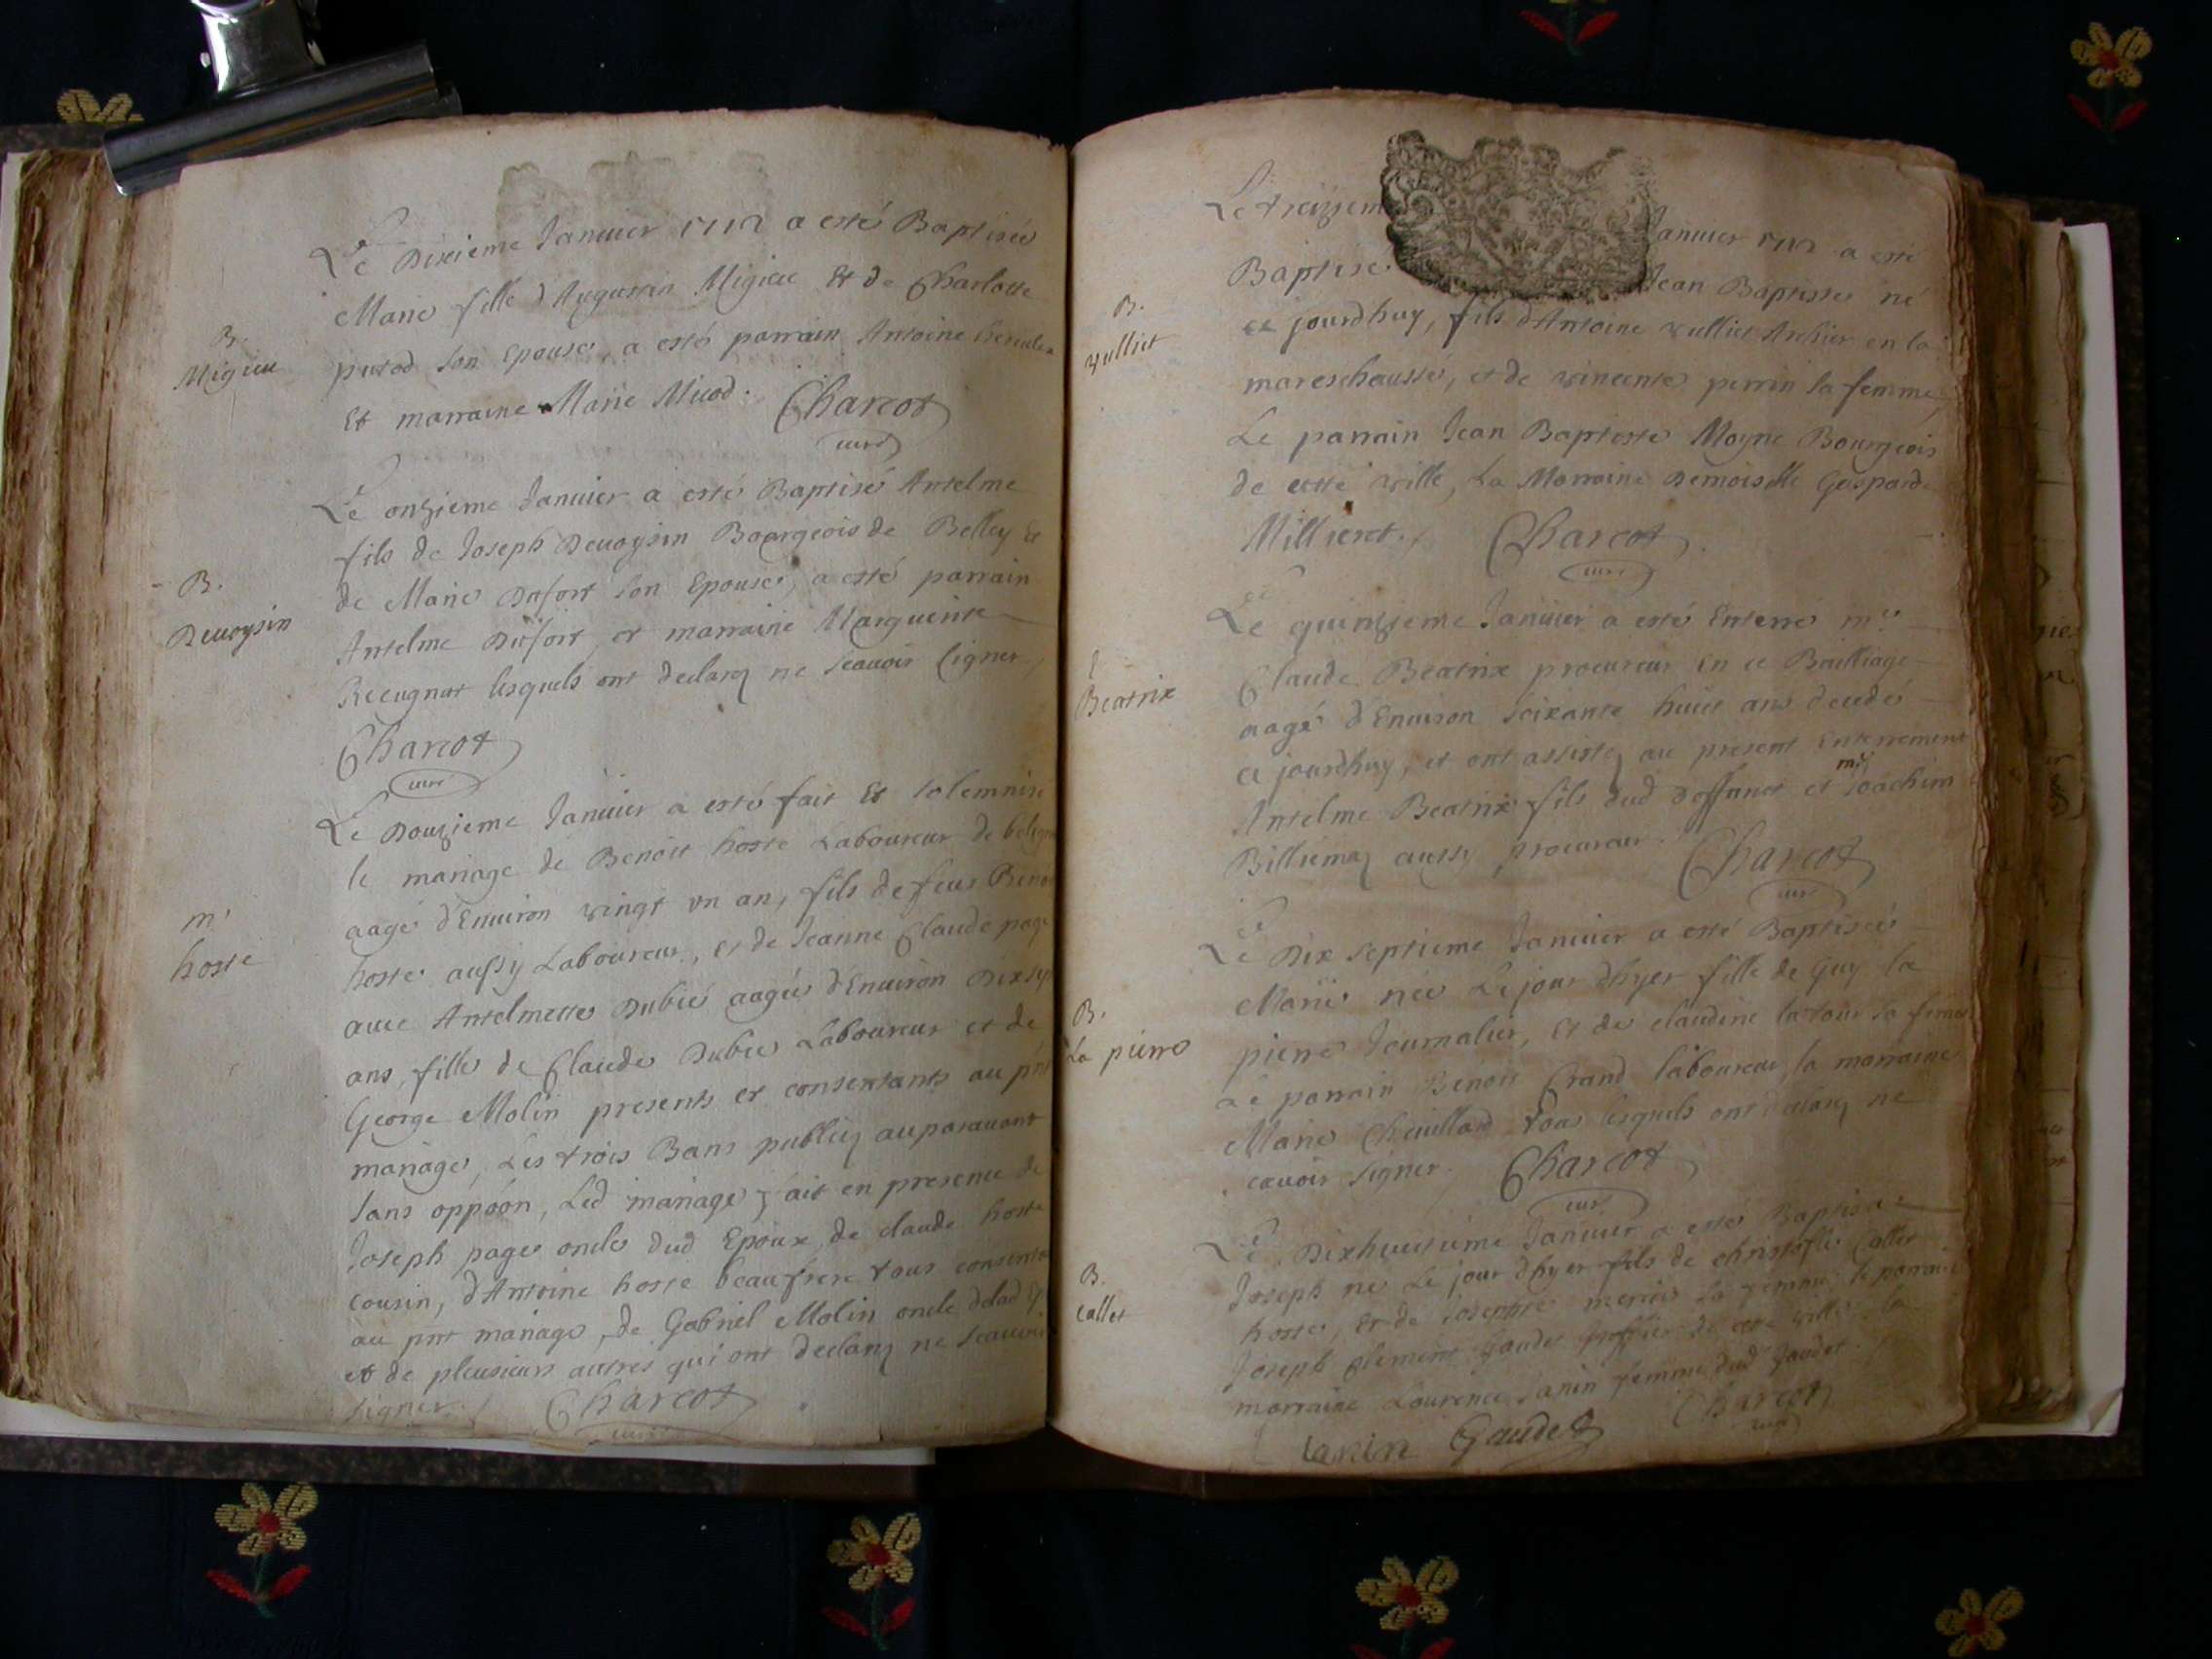 Le Dixieme Januier 1712 a esté Baptisée
Marie fille d'Augustin Migieu Et de Charlotte
B.
Migieu
putod son Epouse, a esté parrain Antoine
Et marraine Marie Micod. Charcot
curé
Le onzieme Januier a esté Baptisé Antelme
fils de Joseph Deuoysin Bourgeois de Belley Et
B.
Deuoysin
de Marie Dufort son Epouse, a esté parrain
Antelme Dufort, et marraine Marguerite
Recugnat lesquels ont declarez ne scauoir signer,
Charcot
curé
Le Douzieme Januier a esté fait Et solemnisé
le mariage de Benoit hoste Laboureur de
aagé d'Enuiron vingt vn an, fils de feus
m.
hoste
hoste aussy Laboureur, et de Jeanne Claude page
auec Antelmette Dubié aagée d'Enuiron Dixsept
ans, fille de Claude Dubié Laboureur et de
George Molin presents et consentants au pnt
mariage, Les trois Bans publiez auparauant
sans oppoon, Led mariage fait en presence de
Joseph page oncle dud Epoux, de claude hoste
cousin, d'Antoine hoste beaufrere tous
au pnt mariage, de Gabriel Molin oncle delad
et de pleusieurs autres qui ont declarez ne scauoir
signer. Charcot
curé
Le treizieme Januier 1712 a esté
Baptisé Jean Baptiste né
B.
vulliet
ce jourdhuy, fils d'Antoine vulliet Archier en la
mareschaussé, et de vincente perrin sa femme,
Le parrain Jean Baptiste Moyne Bourgeois
de cette ville, La Marraine Demoiselle Gasparde
Millieret. Charcot
curé
Le quinzieme Januier a esté Enterré me
E
Beatrix
Claude Beatrix procureur En ce Bailliage
aagé d'Enuiron soixante huict ans decedé
ce jourdhuy, et ont assistez au present Enterrement
Antelme Beatrix fils dud deffunct et me Joachim
Billiemaz aussy procureur. Charcot
curé
Le Dix septieme Januier a esté Baptisée
Marie née Le jour d'hyer fille de Guy la
B.
La pierre
pierre Journalier, Et de claudine latour sa femme
Le parrain Benoit Grand laboureur, la marraine
Marie Cheuillard tous lesquels ont declarez ne
scauoir signer. Charcot
curé
Le Dixhuictieme Januier a esté Baptisé
B.
Callet
Joseph né Le jour d'hyer fils de christofle Callet
hoste, Et de Josephte mercier sa femme, le parrain
Joseph Clement Gaudet greffier de cette ville, la
marraine Laurence Janin femme dud Gaudet.
Charcot
curé
Janin Gaudet